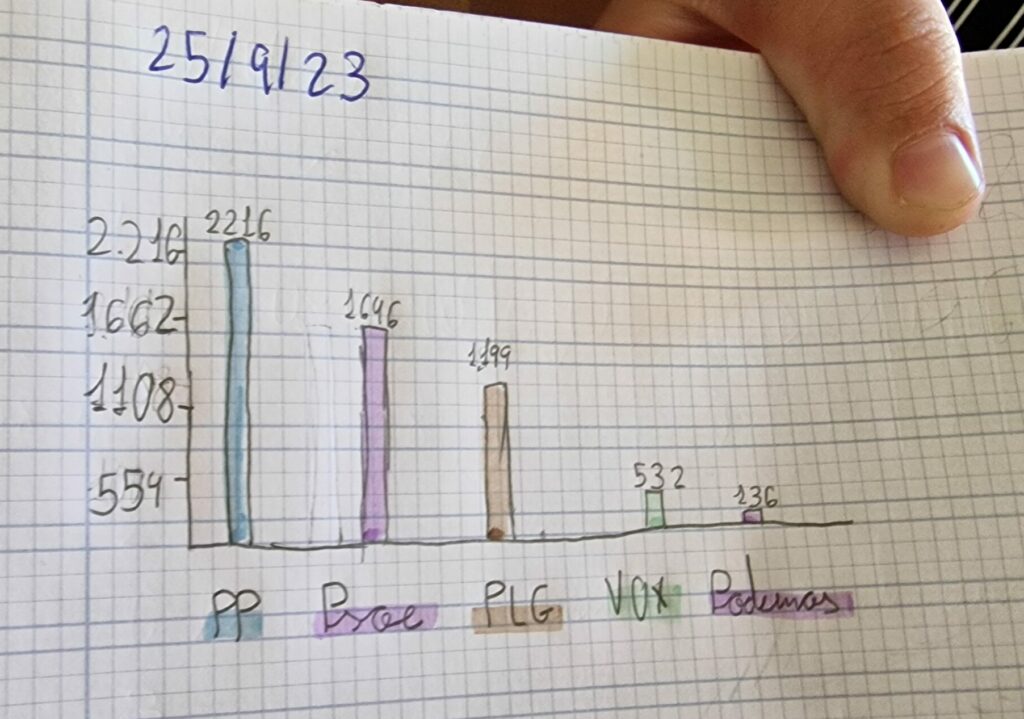 25/9/23
2.216
2216
1662
1646
1108
1199
554
532
136
PP Psoe PLG VOX Podemos